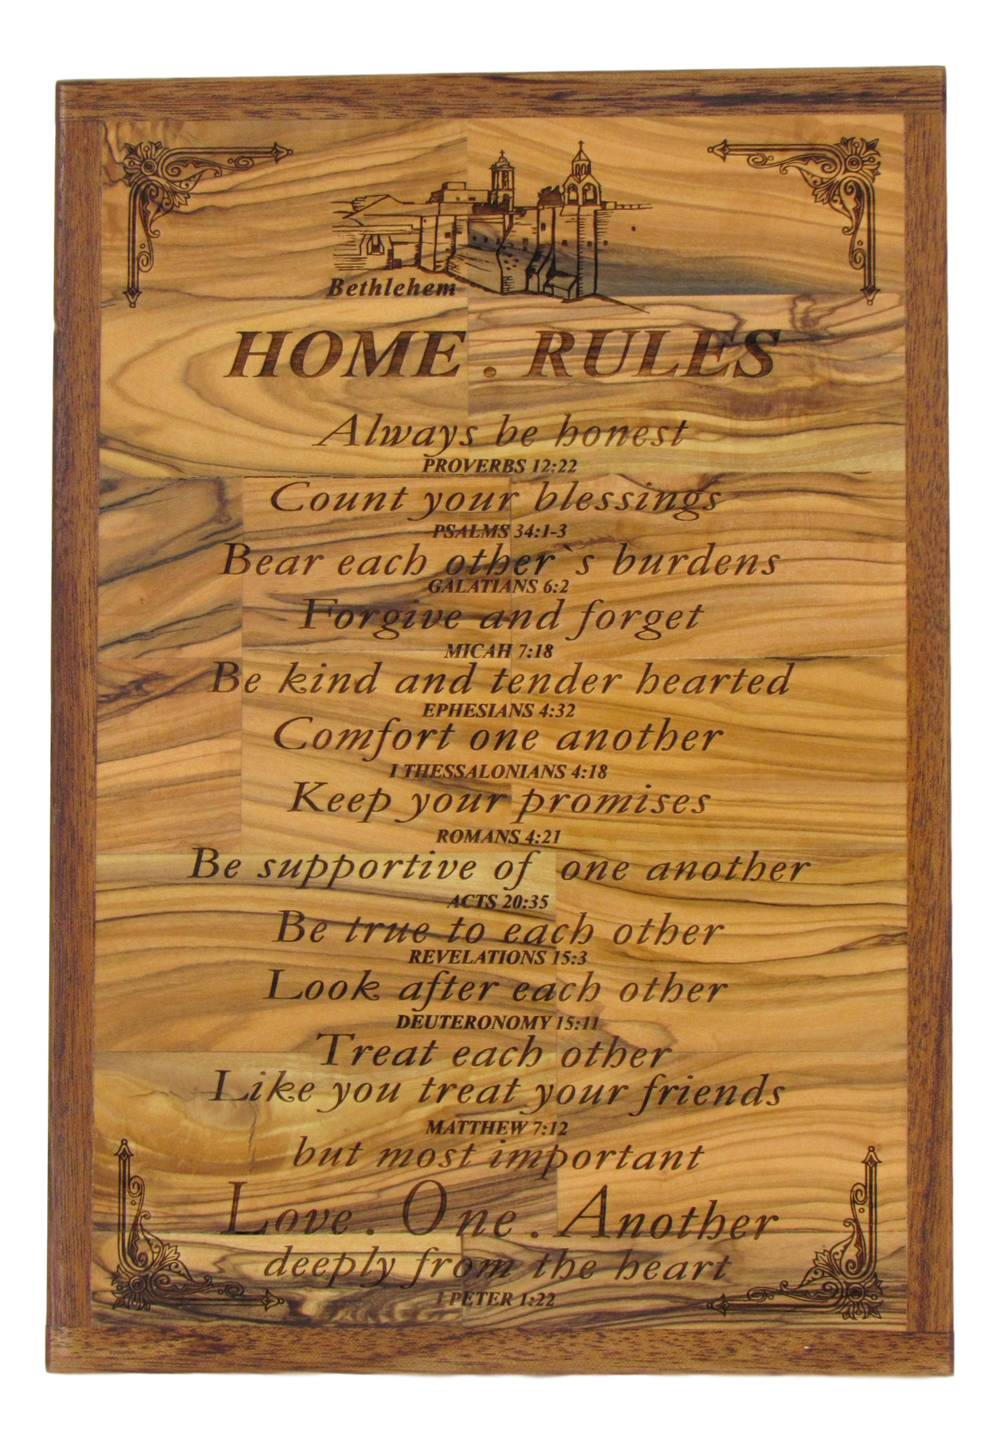 Bethlehem
HOME . RULES
Always be honest
PROVERBS 12:22
Count your blessings
PSALMS 34:1-3
Bear each other`s burdens
GALATIANS 6:2
Forgive and forget
MICAH 7:18
Be kind and tender hearted
EPHESIANS 4:32
Comfort one another
I THESSALONIANS 4:18
Keep your promises
ROMANS 4:21
Be supportive of one another
ACTS 20:35
Be true to each other
REVELATIONS 15:3
Look after each other
DEUTERONOMY 15:11
Treat each other
Like you treat your friends
MATTHEW 7:12
but most important
Love . One . Another
deeply from the heart
I PETER 1:22